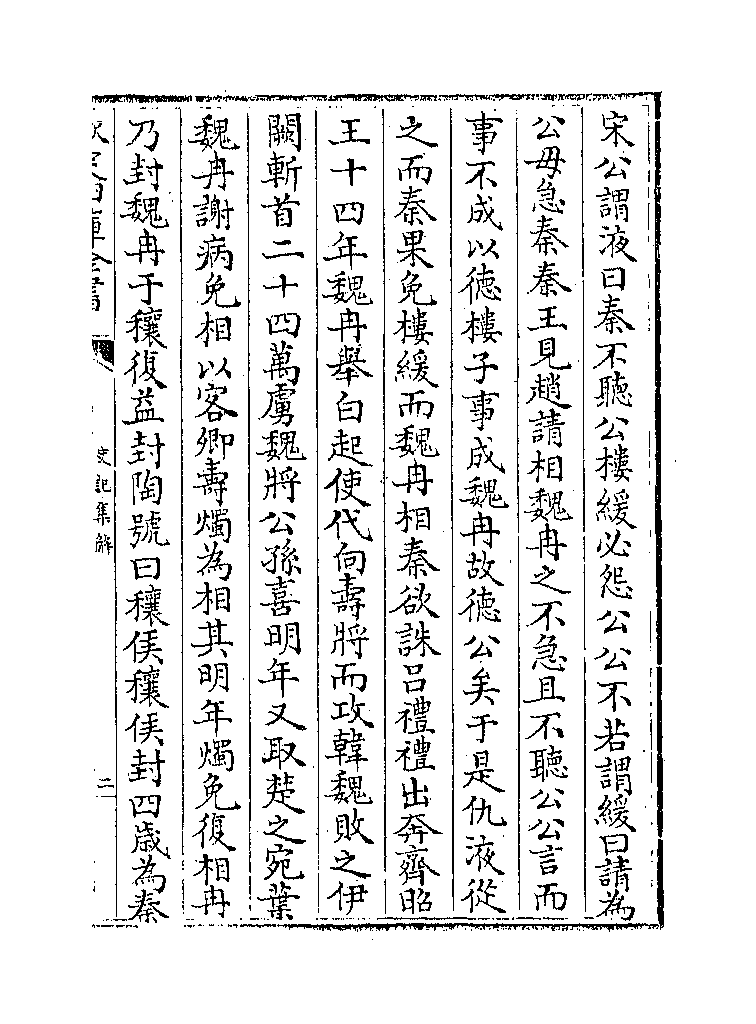 宋公謂液曰秦不聽公樓緩必怨公公不若謂緩曰請為
公毋急秦秦王見趙請相魏冉之不急且不聽公公言而
事不成以德樓子事成魏冉故德公矣于是仇液從
之而秦果免樓緩而魏冉相秦欲誅吕禮禮出奔齊昭
王十四年魏冉舉白起使代向壽將而攻韓魏敗之伊
闕斬首二十四萬虜魏將公孫喜明年又取楚之宛葉
魏冉謝病免相以客卿壽燭為相其明年燭免復相冉
乃封魏冉于穰復益封陶號曰穰侯穰侯封四歲為秦
欽定四庫全書
史記集解
二